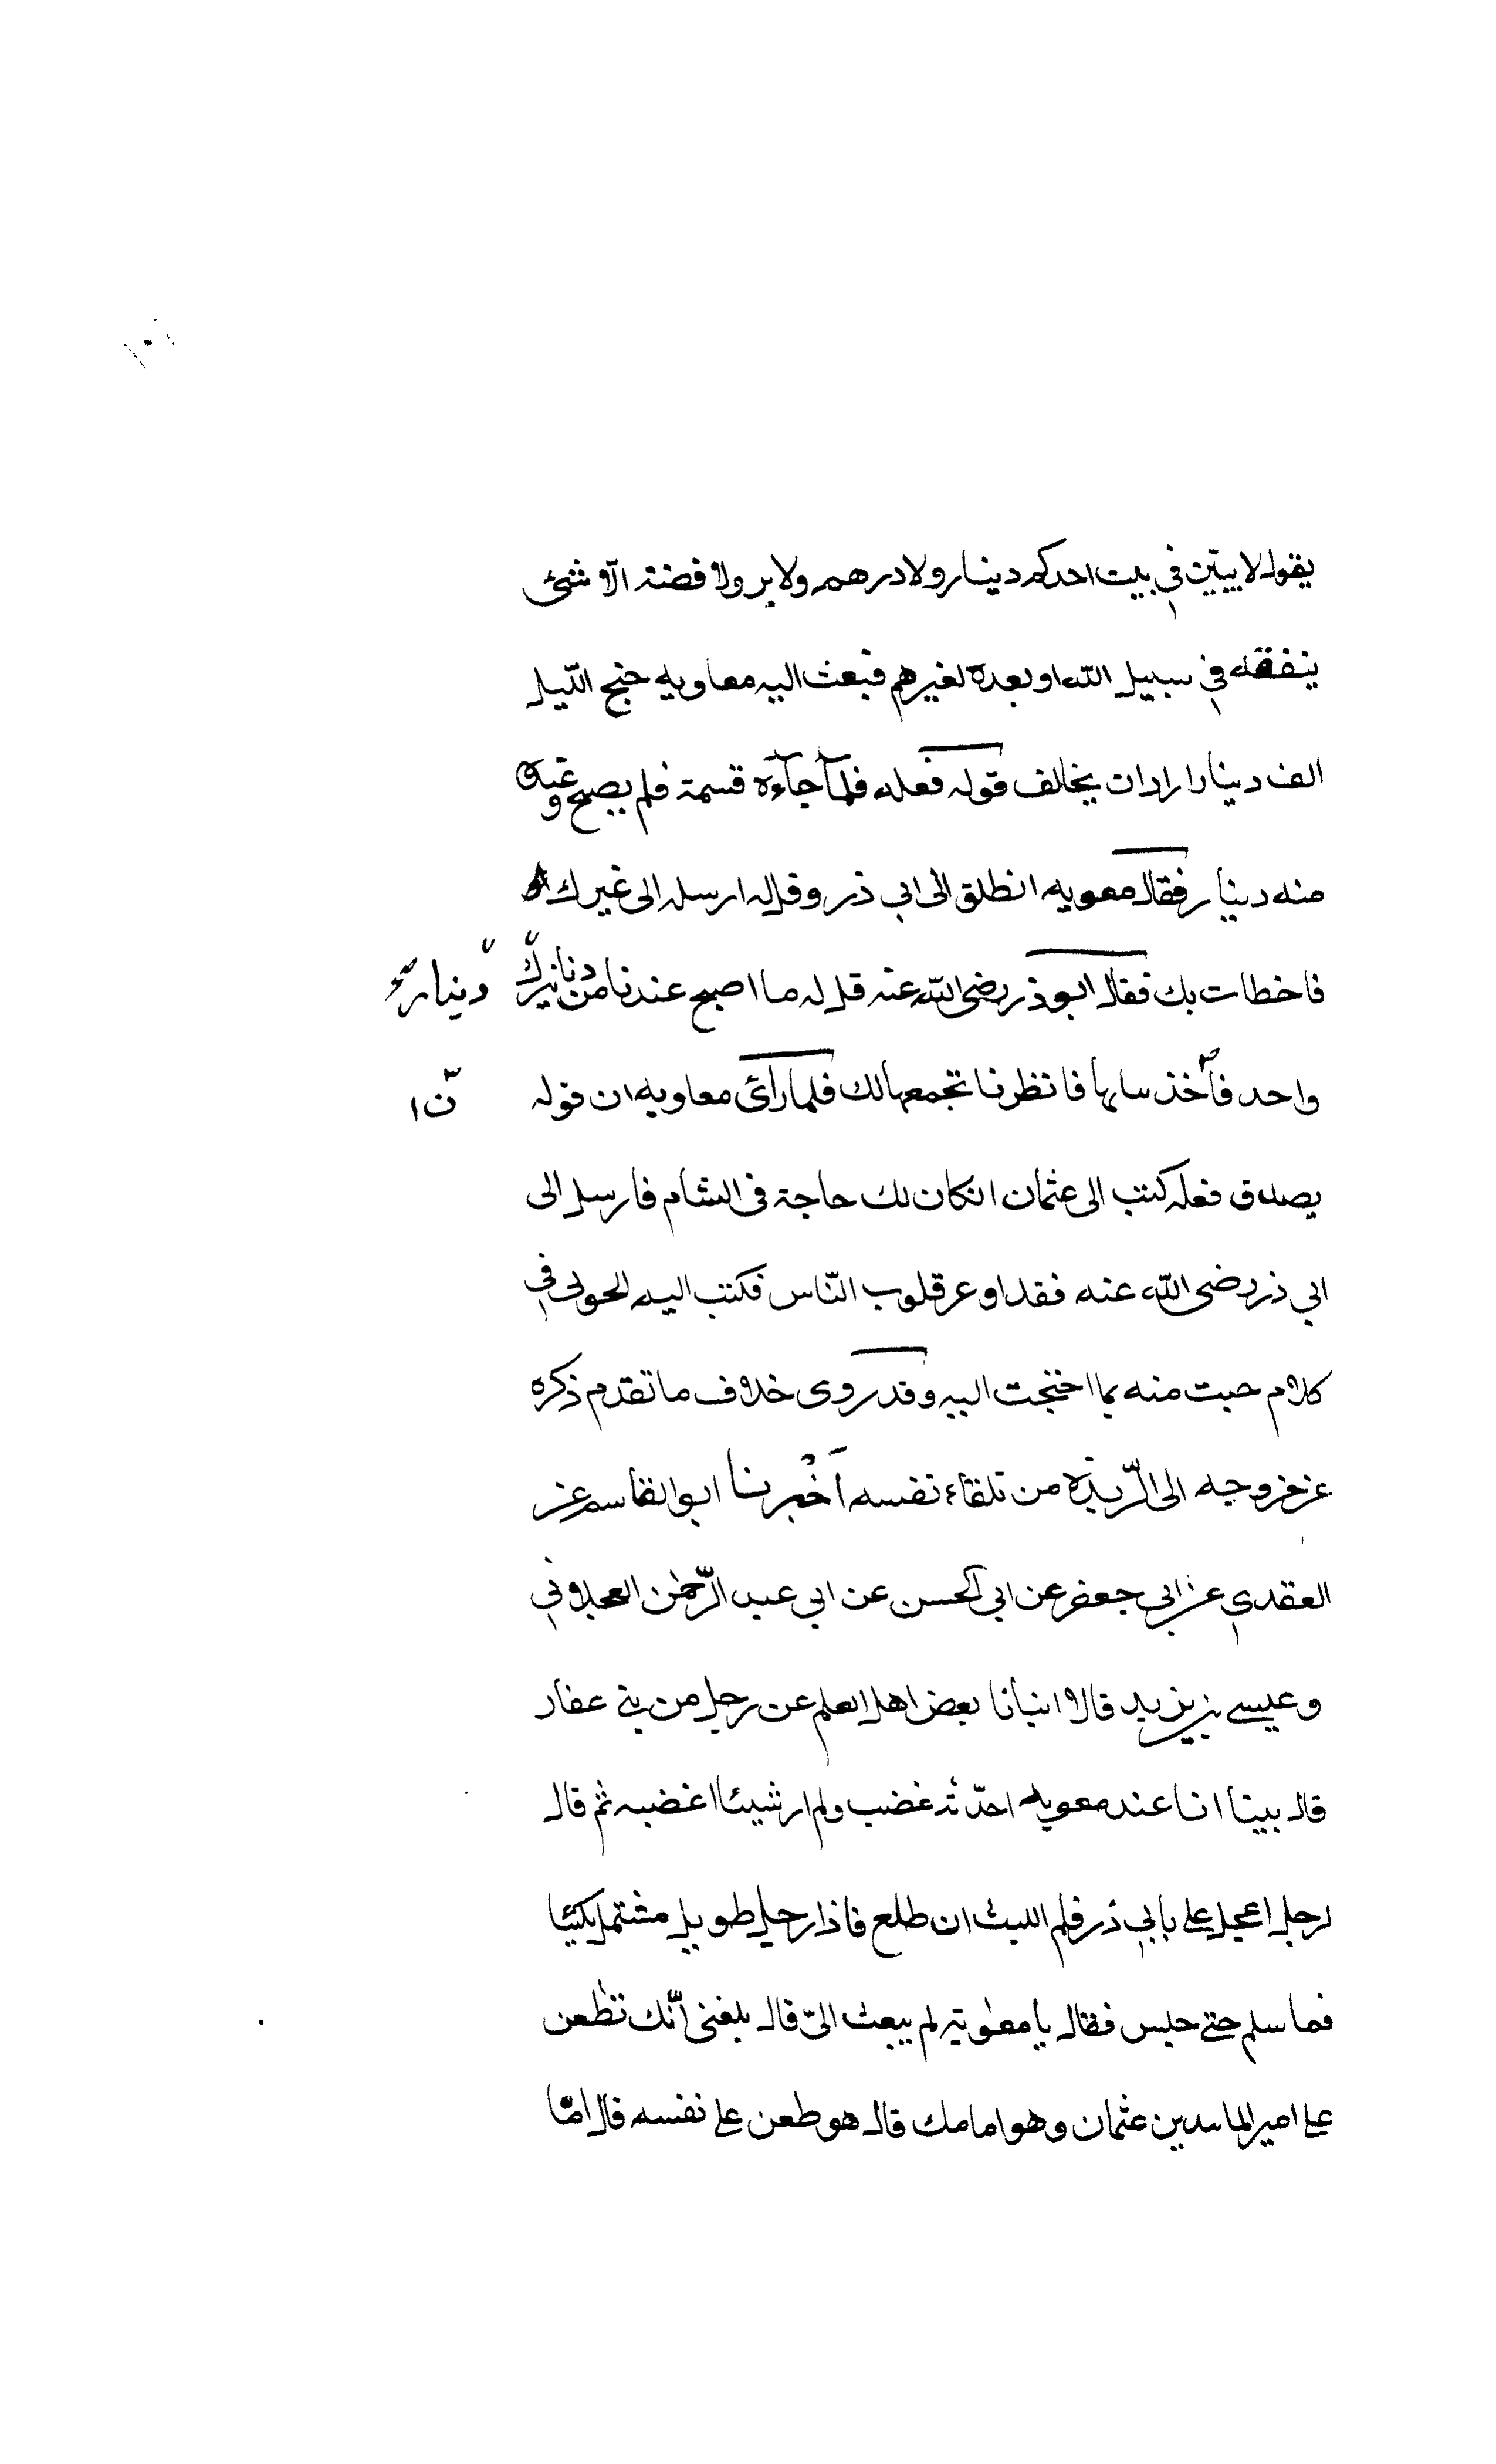 يقول لا يبيتن في بيت احدكم دينار ولا درهم ولا بر ولا فضة الا شئ
ينفقه في سبيل الله او بعده لغيرهم فبعث اليه معاويه جنح الليل
الف دينار اراد ان يخالف قوله فعله فلما جآءه قسمة فلم يصبح وعنده
منه دينار فقال معويه انطلق الى ابي ذر وقل له ارسله الى غيرك
فاخطات بك فقال ابوذر رضى الله عنه قل له ما اصبح عندنا من دنانيرك دينار
واحد فآخذ سابها فانظرنا تجمعها لك فلما رائ معاويه ان قوله
يصدق فعله كتب الى عثمان انكان لك حاجة فى الشام فارسل الى
ابي ذر رضى الله عنه فقد اوعر قلوب الناس فكتب اليه الحو لى في
كلام حبت منه بما احتجت اليه وقد روى خلاف ما تقدم ذكره
عن خروجه الى الرّبذه من تلقاء نفسه اَخْبرنا ابو القاسم عن
العقدي عن ابي جعفر عن ابي الحسن عن ابي عبد الرّحمن العجلاني
وعيسى بن يزيد قالا انبانا بعض اهل العلم عن رجل من بني عفار
قال بينا انا عند معويه احدّثه غضب ولم ار شيئا اغضبه ثم قال
لرجل اعجل على بابي ذر فلم البث ان طلع فاذا رجل طويل مشتمل بكسا
فما سلم حتى جلس فقال يا معوية لم يبعث الىّ قال بلغنى انّك تطعن
على امير عثمان وهو امامك قال هو طعن على نفسه قال امّا